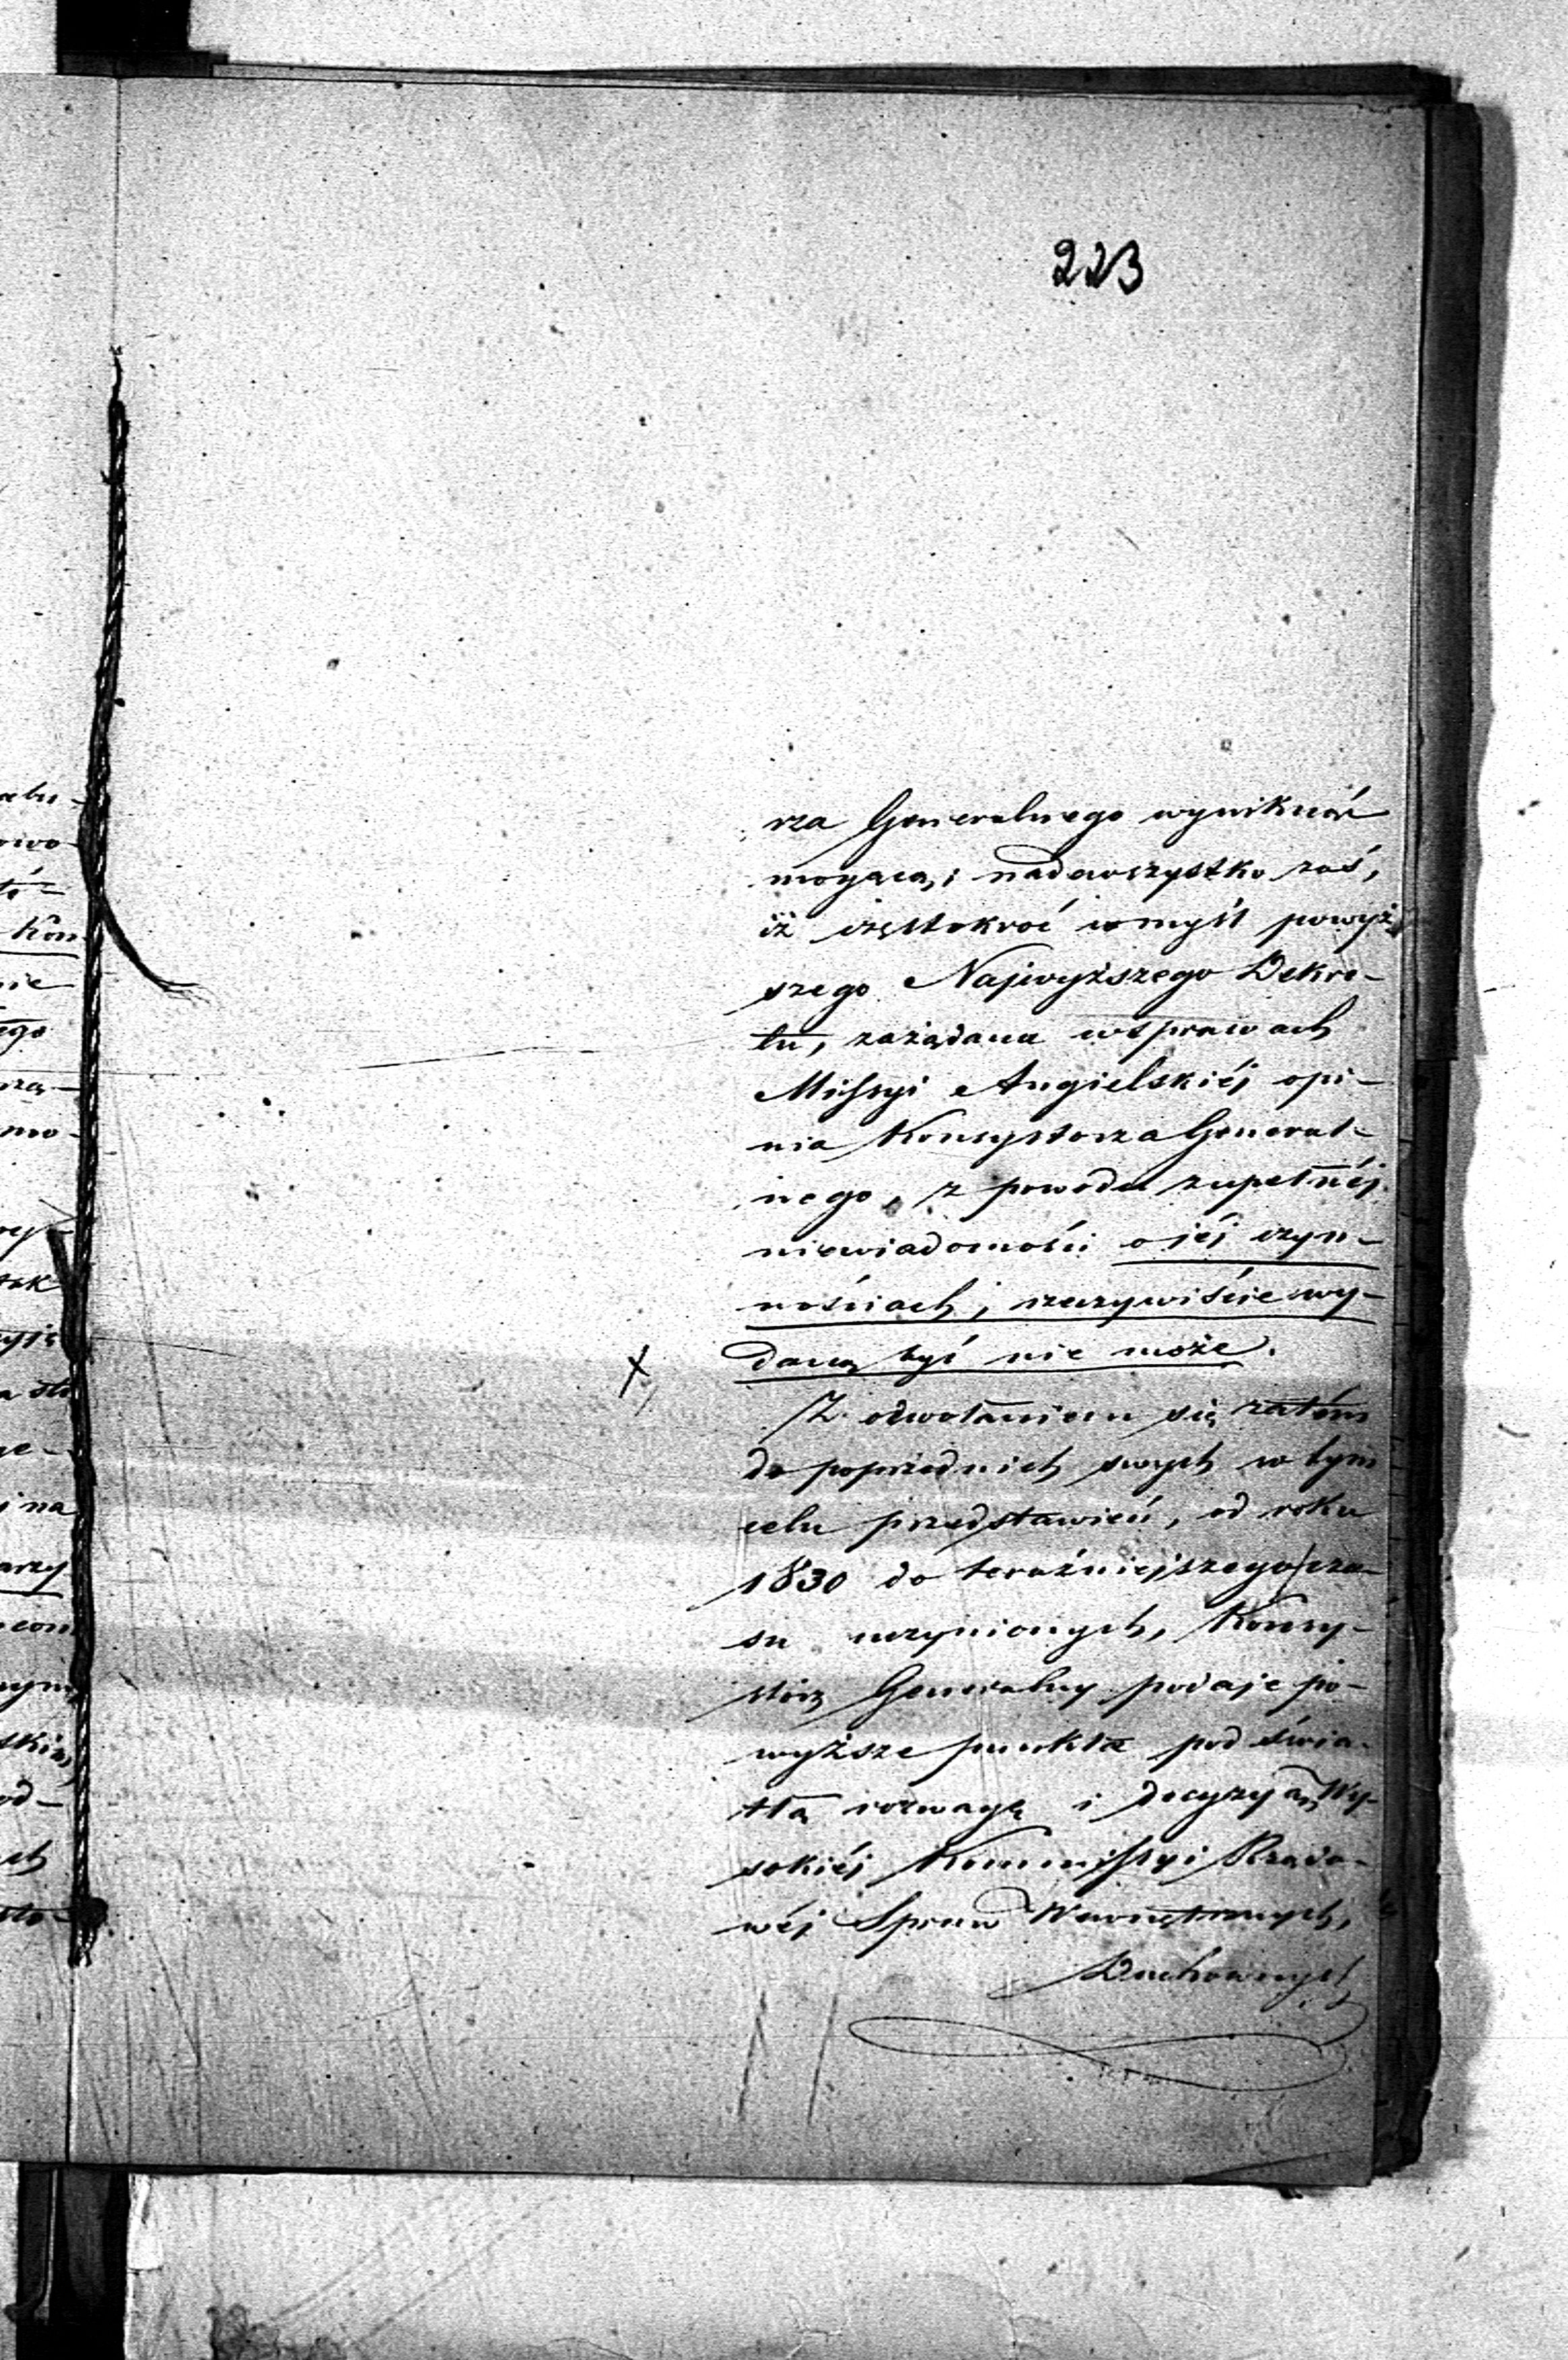 223
rza Generalnego wyniknąć
mogącą; nadewszystko zaś,
iż częstokroć w myśl powyż
szego Najwyższego Dekre-
tu, zażądana w sprawach
Missyi Angielskiéj opi-
nia Konsystorza General-
nego, z powodu zupełnéj
niewiadomości o jéj czyn-
nościach, rzeczywiście wy-
daną być nie może.
X
Z odwołaniem się zatém
do poprzednich swych w tym
celu przedstawień, od roku
1830 do teraźniejszego cza-
su uczynionych, Konsy-
storz Generalny podaje po-
wyższe punkta pod świa-
tłą rozwagę i decyzyą Wy-
sokiéj Kommissyi Rządo-
wéj Spraw Wewnętrznych,
Duchownych